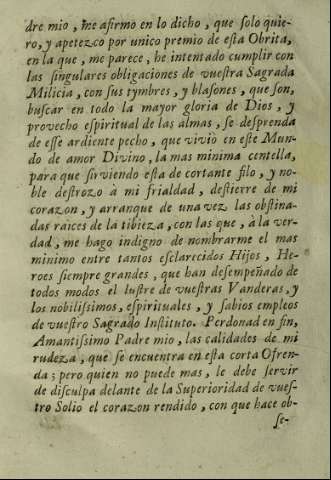 dre mio, me afirmo en lo dicho, que solo quie-
ro, y apetezco por unico premio de esta Obrita,
en la que, me parece, he intentado cumplir con
las singulares obligaciones de vuestra Sagrada
Milicia, con sus tymbres, y blasones, que son,
buscar en todo la mayor gloria de Dios, y
provecho espiritual de las almas, se desprenda
de esse ardiente pecho, que viviò en este Mun-
do de amor Divino, la mas minima centella,
para que sirviendo esta de cortante filo, y no-
ble destrozo à mi frialdad, destierre de mi
corazon, y arranque de una vez las obstina-
das raices de la tibieza, con las que, à la ver-
dad, me hago indigno de nombrarme el mas
minimo entre tantos esclarecidos Hijos, He-
roes siempre grandes, que han desempeñado de
todos modos el lustre de vuestras Vanderas, y
los nobilissimos, espirituales, y sabios empleos
de vuestro Sagrado Instituto. Perdonad en fin,
Amantissimo Padre mio, las calidades de mi
rudeza, que se encuentra en esta corta Ofren-
da; pero quien no puede mas, le debe servir
de disculpa delante de la Superioridad de vues-
tro Solio el corazon rendido, con que hace ob-
se-